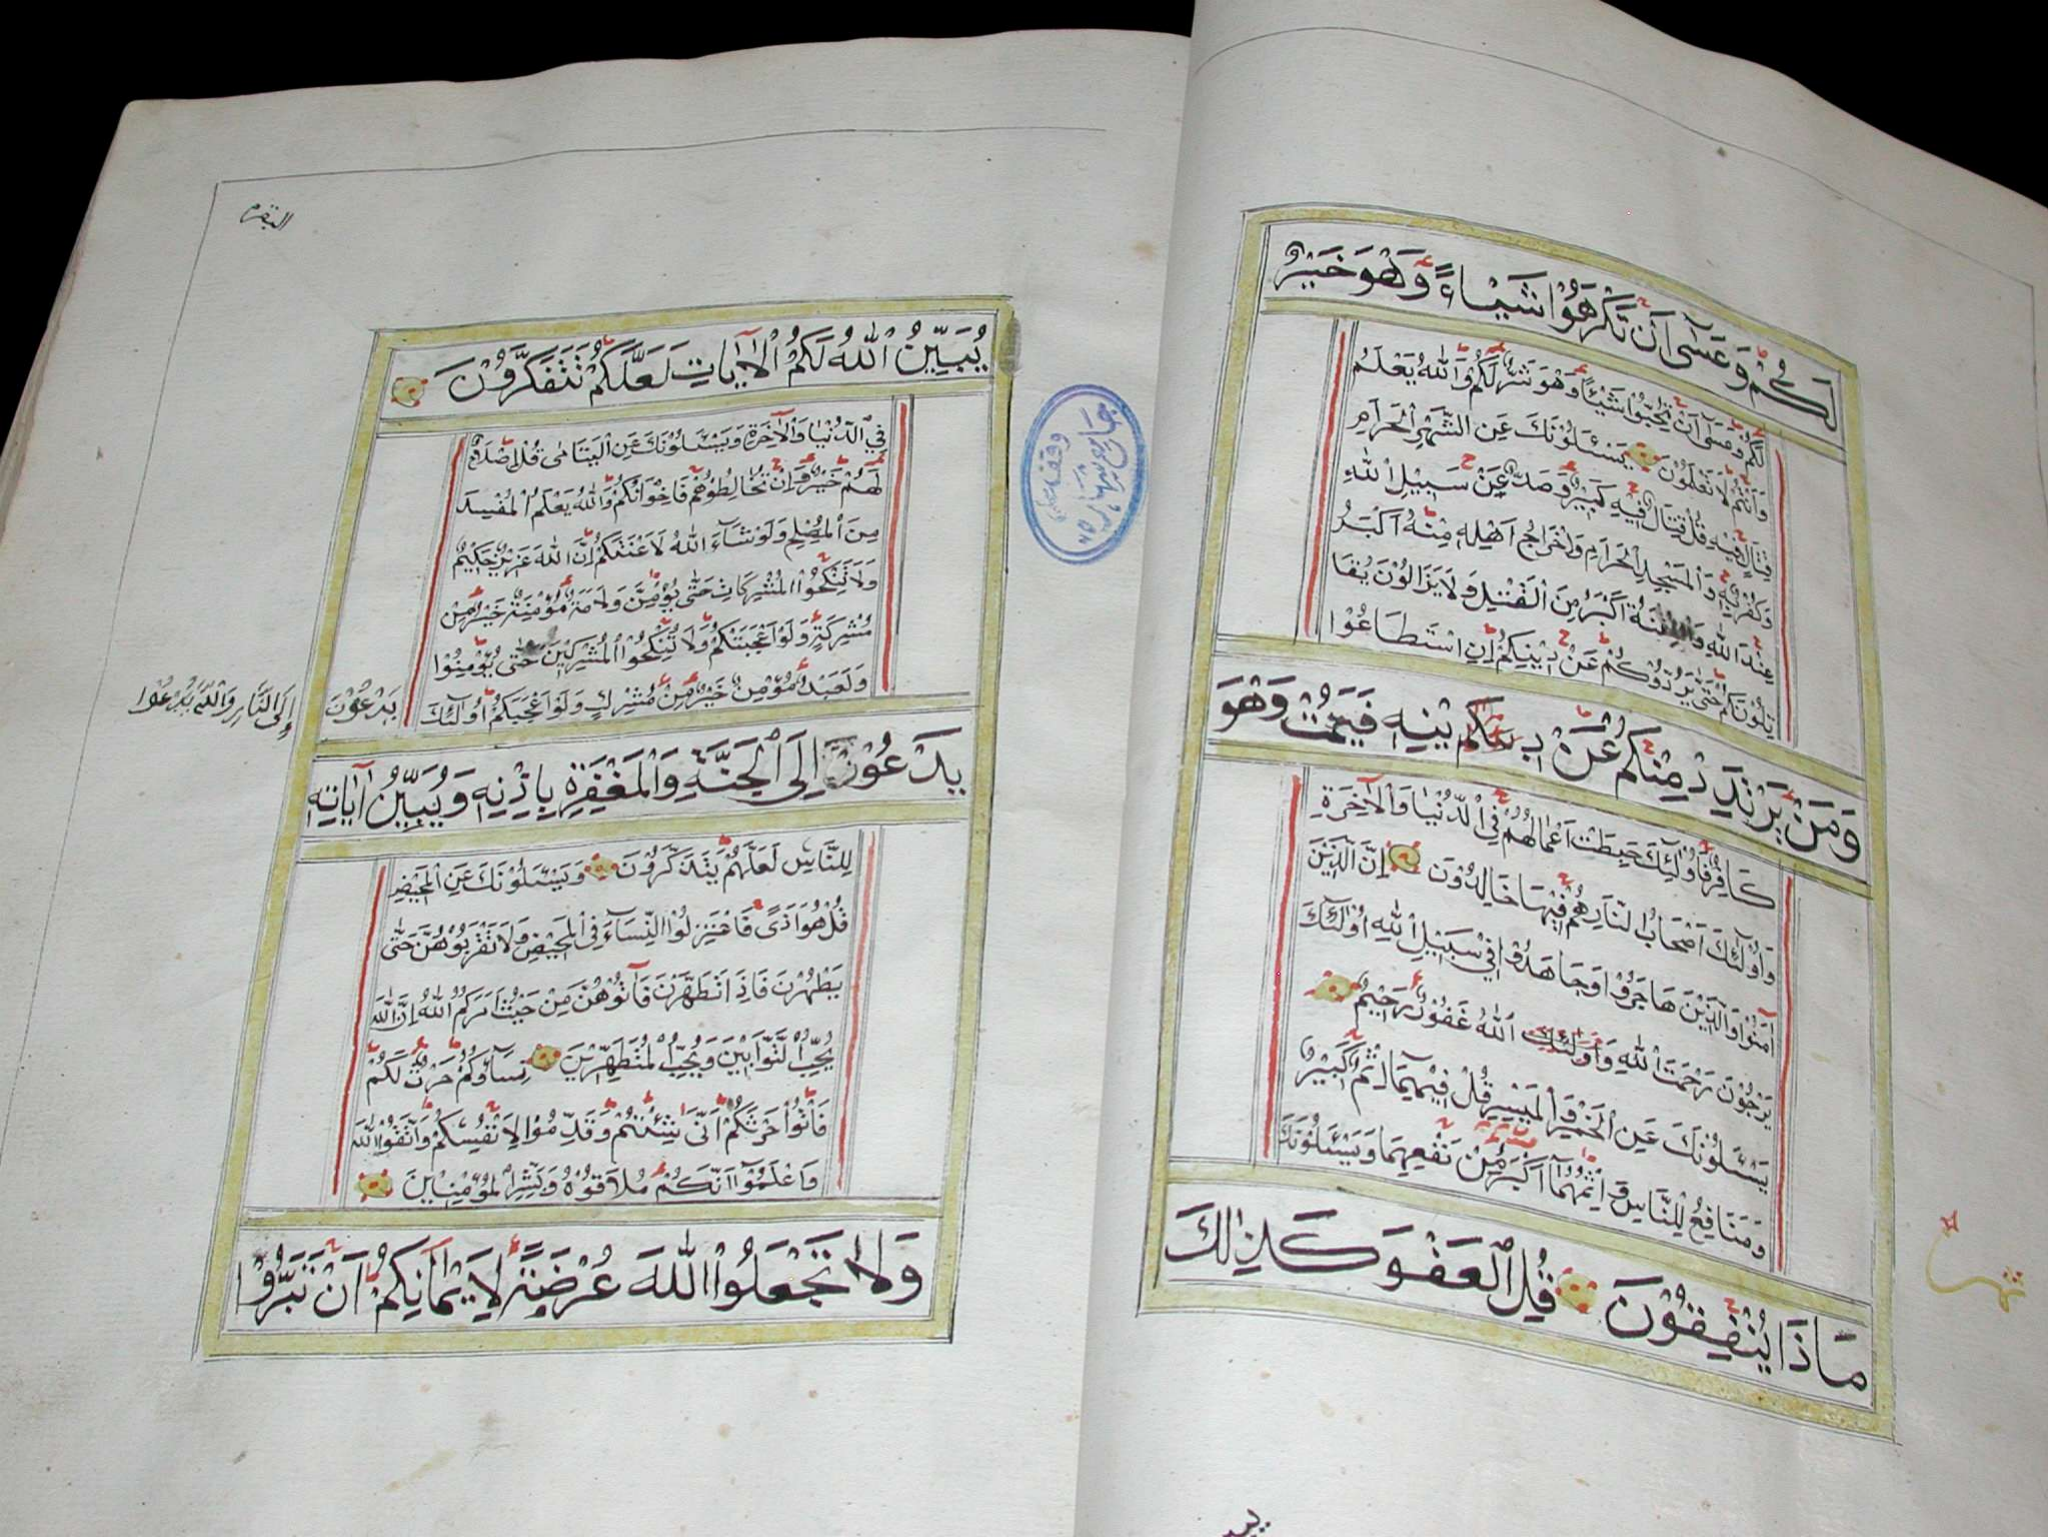 لَكُمْ وَعَسَىٰٓ اَنْ تَكْرَهُوْا شَيْـًٔاءً وَهُوَ خَيْرٌ
لَكُمْ وَعَسٰىٓ اَنْ تُحِبُّوْا شَيْـًٔا وَهُوَ شَرٌّ لَكُمْ وَاللّٰهُ يَعْلَمُ
وَاَنْتُمْ لَا تَعْلَمُوْنَ يَسْـَٔلُوْنَكَ عَنِ الشَّهْرِ الْحَرَامِ
قِتَالٍ فِيْهِ قُلْ قِتَالٌ فِيْهِ كَبِيْرٌ وَصَدٌّ عَنْ سَبِيْلِ اللّٰهِ
وَكُفْرٌ بِهٖ وَالْمَسْجِدِ الْحَرَامِ وَاِخْرَاجُ اَهْلِهٖ مِنْهُ اَكْبَرُ
عِنْدَ اللّٰهِ وَالْفِتْنَةُ اَكْبَرُ مِنَ الْقَتْلِ وَلَا يَزَالُوْنَ يُقَا
تِلُوْنَكُمْ حَتّٰى يَرُدُّوْكُمْ عَنْ دِيْنِكُمْ اِنِ اسْتَطَاعُوْا
وَمَنْ يَرْتَدِدْ مِنْكُمْ عَنْ دِيْنِهٖ فَيَمُتْ وَهُوَ
كَافِرٌ فَاُوْلٰٓئِكَ حَبِطَتْ اَعْمَالُهُمْ فِي الدُّنْيَا وَالْاٰخِرَةِ
وَاُولٰٓئِكَ اَصْحَابُ النَّارِ هُمْ فِيْهَا خَالِدُوْنَ اِنَّ الَّذِيْنَ
اٰمَنُوْا وَالَّذِيْنَ هَاجَرُوْا وَجَاهَدُوْا فِيْ سَبِيْلِ اللّٰهِ اُولٰٓئِكَ
يَرْجُوْنَ رَحْمَتَ اللّٰهِ وَاُولٰٓئِكَ اللّٰهُ غَفُوْرٌ رَحِيْمٌ
يَسْـَٔلُوْنَكَ عَنِ الْخَمْرِ وَالْمَيْسِرِ قُلْ فِيْهِمَآ اِثْمٌ كَبِيْرٌ
وَمَنَافِعُ لِلنَّاسِ وَاِثْمُهُمَآ اَكْبَرُ مِنْ نَفْعِهِمَا وَيَسْـَٔلُوْنَكَ
مَاذَا يُنْفِقُوْنَ قُلِ الْعَفْوَ كَذٰلِكَ
البقرة
يُبَيِّنُ اللّٰهُ لَكُمُ الْاٰيَاتِ لَعَلَّكُمْ تَتَفَكَّرُوْنَ
فِي الدُّنْيَا وَالْاٰخِرَةِ وَيَسْـَٔلُوْنَكَ عَنِ الْيَتَامٰى قُلْ اِصْلَاحٌ
لَهُمْ خَيْرٌ وَاِنْ تُخَالِطُوْهُمْ فَاِخْوَانُكُمْ وَاللّٰهُ يَعْلَمُ الْمُفْسِدَ
مِنَ الْمُصْلِحِ وَلَوْ شَآءَ اللّٰهُ لَاَعْنَتَكُمْ اِنَّ اللّٰهَ عَزِيْزٌ حَكِيْمٌ
وَلَا تَنْكِحُوا الْمُشْرِكَاتِ حَتّٰى يُؤْمِنَّ وَلَاَمَةٌ مُؤْمِنَةٌ خَيْرٌ مِنْ
مُشْرِكَةٍ وَلَوْ اَعْجَبَتْكُمْ وَلَا تُنْكِحُوا الْمُشْرِكِيْنَ حَتّٰى يُؤْمِنُوْا
وَلَعَبْدٌ مُؤْمِنٌ خَيْرٌ مِنْ مُشْرِكٍ وَلَوْ اَعْجَبَكُمْ اُولٰٓئِكَ
يَدْعُوْنَ اِلَى النَّارِ وَاللّٰهُ يَدْعُوْا
يَدْعُوْنَ اِلَى الْجَنَّةِ وَالْمَغْفِرَةِ بِاِذْنِهٖ وَيُبَيِّنُ اٰيَاتِهٖ
لِلنَّاسِ لَعَلَّهُمْ يَتَذَكَّرُوْنَ وَيَسْـَٔلُوْنَكَ عَنِ الْمَحِيْضِ
قُلْ هُوَ اَذًى فَاعْتَزِلُوا النِّسَآءَ فِي الْمَحِيْضِ وَلَا تَقْرَبُوْهُنَّ حَتّٰى
يَطْهُرْنَ فَاِذَا تَطَهَّرْنَ فَأْتُوْهُنَّ مِنْ حَيْثُ اَمَرَكُمُ اللّٰهُ اِنَّ اللّٰهَ
يُحِبُّ التَّوَّابِيْنَ وَيُحِبُّ الْمُتَطَهِّرِيْنَ نِسَآؤُكُمْ حَرْثٌ لَكُمْ
فَأْتُوْا حَرْثَكُمْ اَنّٰى شِئْتُمْ وَقَدِّمُوْا لِاَنْفُسِكُمْ وَاتَّقُوا اللّٰهَ
وَاعْلَمُوْٓا اَنَّكُمْ مُلَاقُوْهُ وَبَشِّرِ الْمُؤْمِنِيْنَ
وَلَا تَجْعَلُوا اللّٰهَ عُرْضَةً لِاَيْمَانِكُمْ اَنْ تَبَرُّوْا